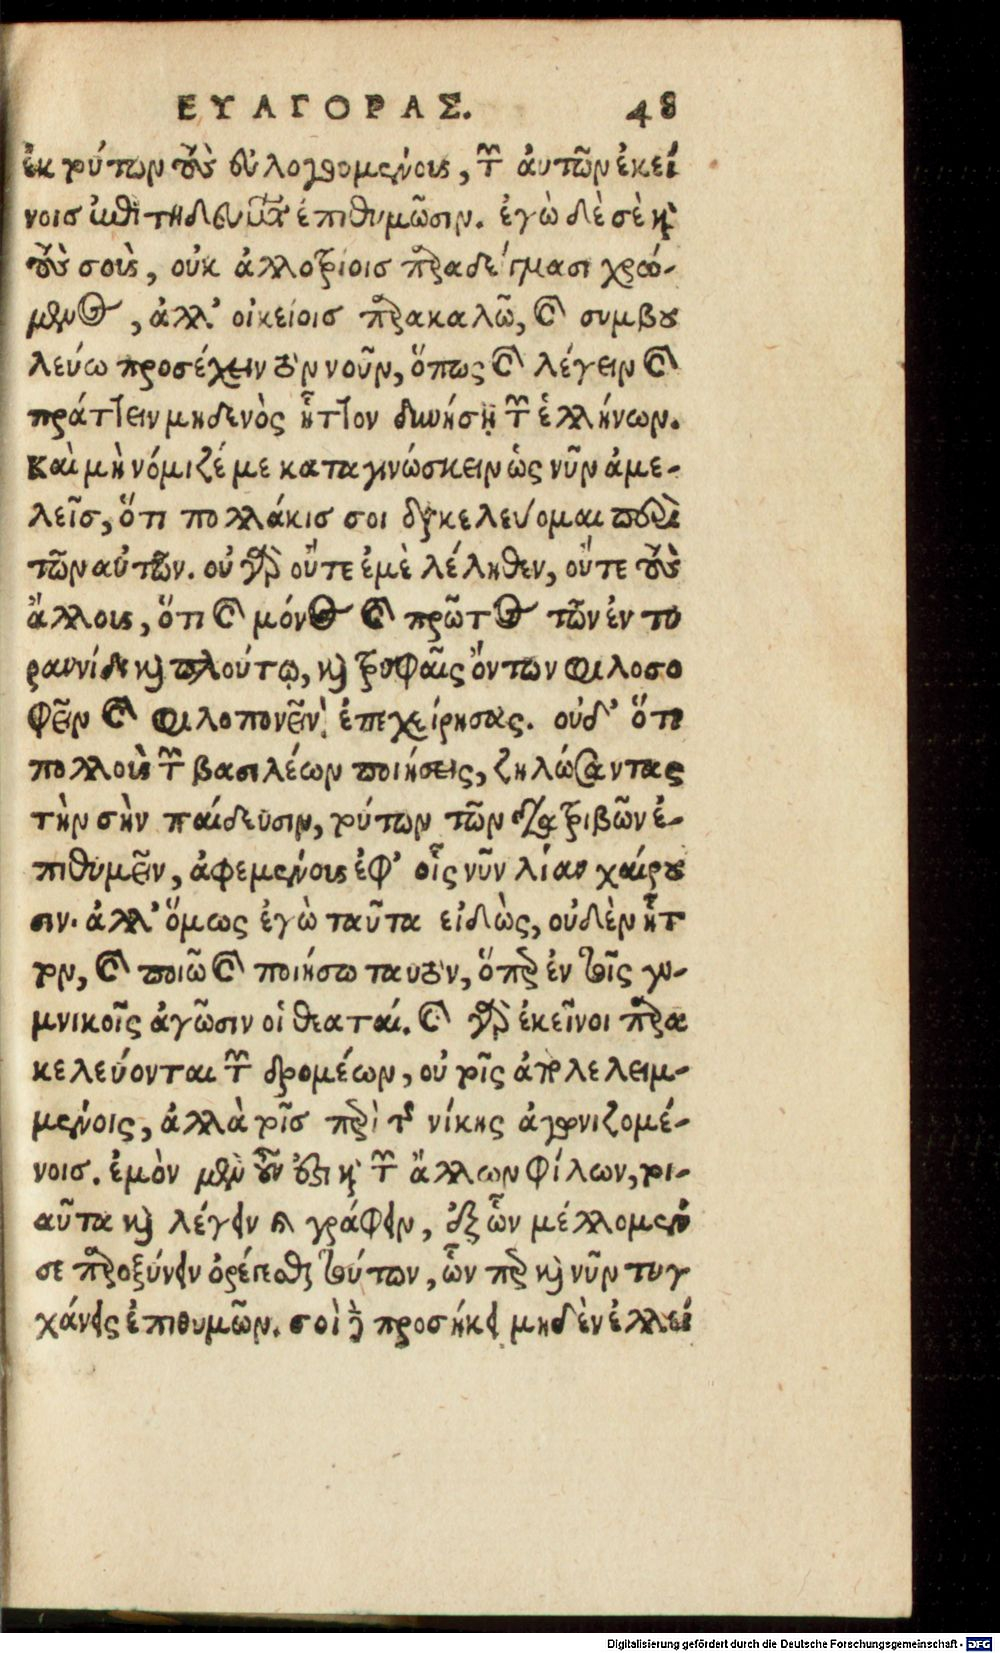 ΕΥΑΓΟΡΑΣ. 48
ἐκ τούτων τοὺς εὐλογουμένους, τῶν αὐτῶν ἐκεί
νοις ἐπιτηδευμάτων ἐπιθυμῶσιν. ἐγὼ δὲ σὲ καὶ
τοὺς σοὺς, οὐκ ἀλλοτρίοις παραδείγμασι χρώ-
μενος, ἀλλ' οἰκείοις παρακαλῶ, καὶ συμβου
λεύω προσέχειν τὸν νοῦν, ὅπως καὶ λέγειν καὶ
πράττειν μηδενὸς ἧττον δυνήσῃ τῶν ἑλλήνων.
Καὶ μὴ νόμιζέ με καταγινώσκειν ὡς νῦν ἀμε-
λεῖς, ὅτι πολλάκις σοι διακελεύομαι περὶ
τῶν αὐτῶν. οὐ γὰρ οὔτε ἐμὲ λέληθεν, οὔτε τοὺς
ἄλλους, ὅτι καὶ μόνος καὶ πρῶτος τῶν ἐν τυ
ραννίδι καὶ πλούτῳ, καὶ τρυφαῖς ὄντων φιλοσο
φεῖν καὶ φιλοπονεῖν ἐπεχείρησας. οὐδ' ὅτι
πολλοὺς τῶν βασιλέων ποιήσεις, ζηλώσαντας
τὴν σὴν παίδευσιν, τούτων τῶν διατριβῶν ἐ-
πιθυμεῖν, ἀφεμένους ἐφ' οἷς νῦν λίαν χαίρου
σιν. ἀλλ' ὅμως ἐγὼ ταῦτα εἰδὼς, οὐδὲν ἧτ
τον, καὶ ποιῶ καὶ ποιήσω ταυτὸν, ὅπερ ἐν τοῖς γυ-
μνικοῖς ἀγῶσιν οἱ θεαταί. καὶ γὰρ ἐκεῖνοι παρα
κελεύονται τῶν δρομέων, οὐ τοῖς ἀπολελειμ-
μένοις, ἀλλὰ τοῖς περὶ τῆς νίκης ἀγωνιζομέ-
νοις. ἐμὸν μὲν οὖν ἔστι καὶ τῶν ἄλλων φίλων, τοι-
αῦτα καὶ λέγειν καὶ γράφειν, ἐξ ὧν μέλλομέν
σε παροξύνειν ὀρέγεσθαι τούτων, ὧν περ καὶ νῦν τυγ
χάνεις ἐπιθυμῶν. σοὶ δὲ προσήκει μηδὲν ἐλλεί
Digitalisierung gefördert durch die Deutsche Forschungsgemeinschaft - DFG